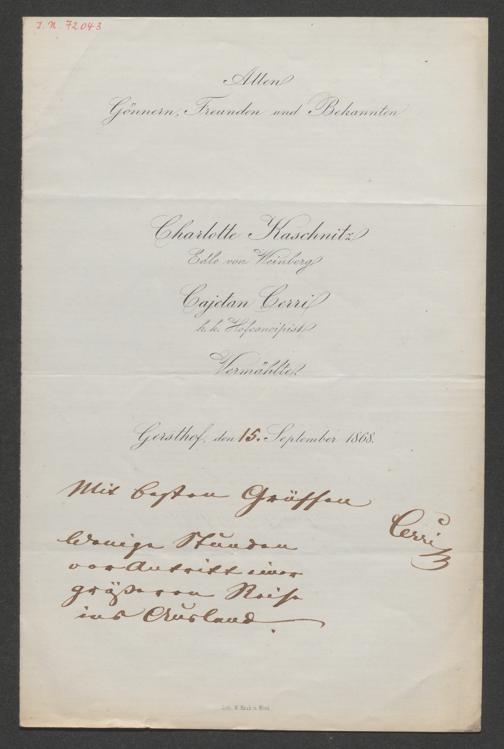 I. N. 72.043
Allen
Gönnern, Freunden und Bekannten
Charlotte Kaschnitz
Edle von Weinberg
Cajetan Cerri
k. k. Hofconcipist
Vermählte.
Gersthof, den 15. September 1868.
Mit besten Grüssen
Cerri
Wenige Stunden
vor Antritt einer
größeren Reise
ins Ausland.